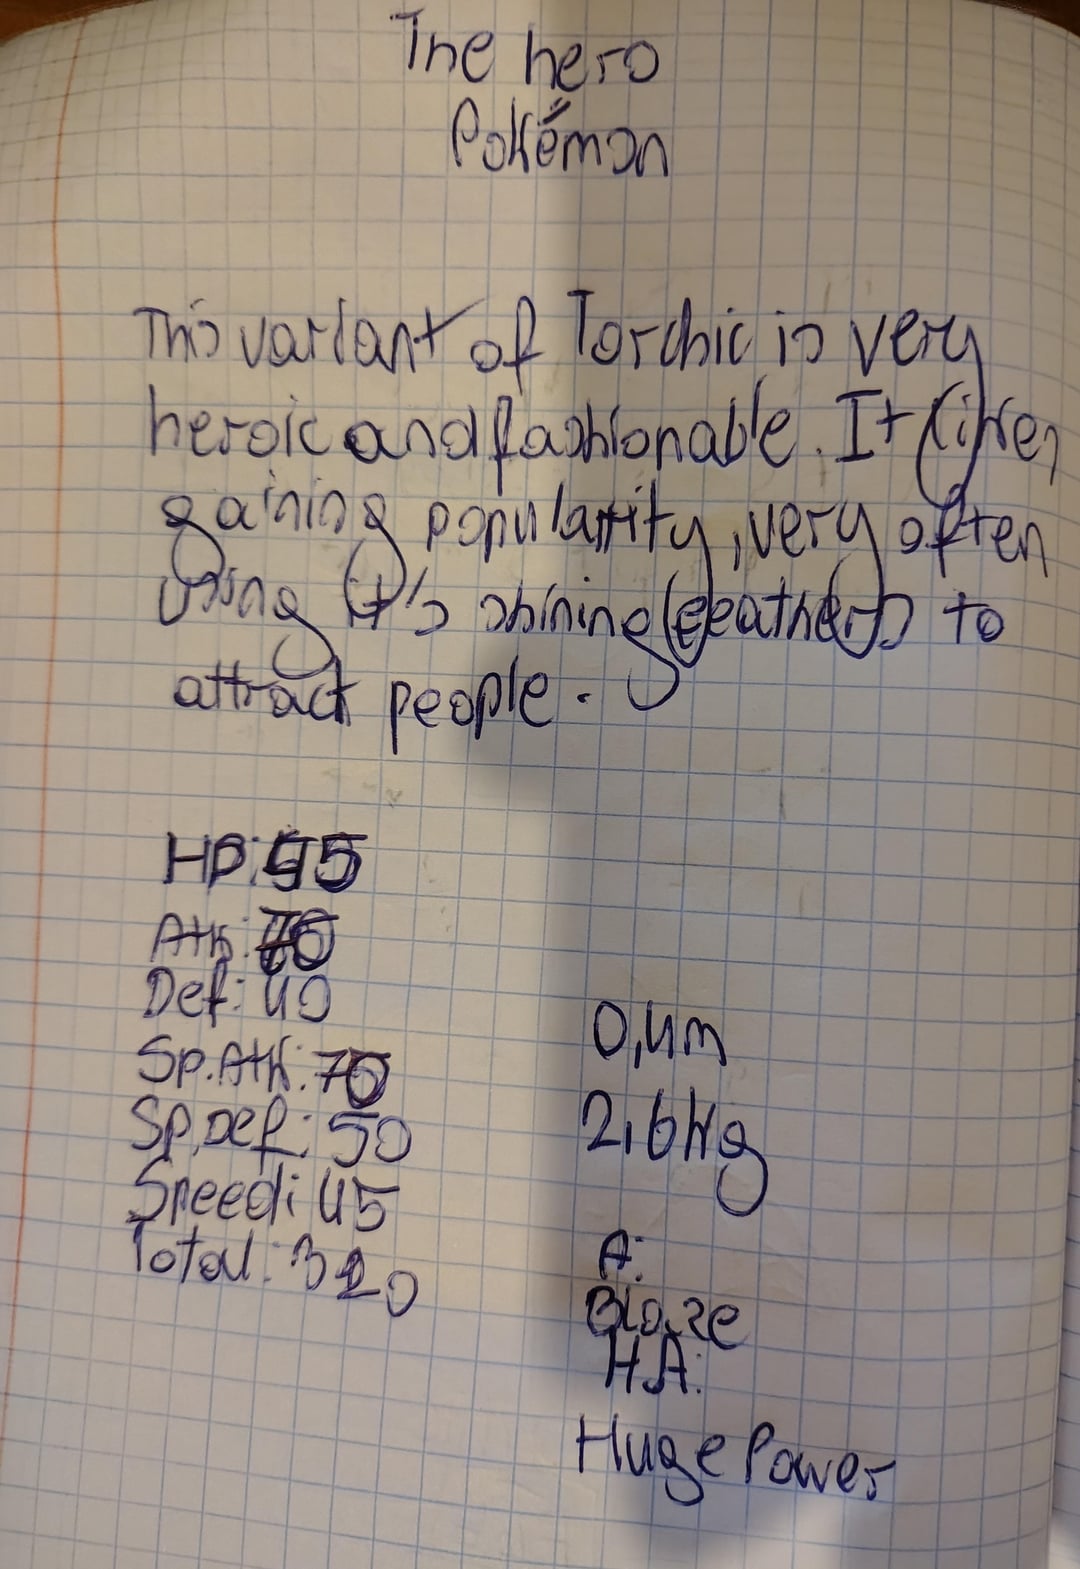 The hero
Pokémon
This variant of Torchic is very
heroic and fashionable. It likes
gaining popularity, very often
using it's shining feathers to
attract people.
HP:
Atk:
Def: 40
Sp.Atk: 70
Sp.Def: 50
Speed: 45
Total: 320
0,4m
2,6kg
A:
Blaze
HA:
Huge Power